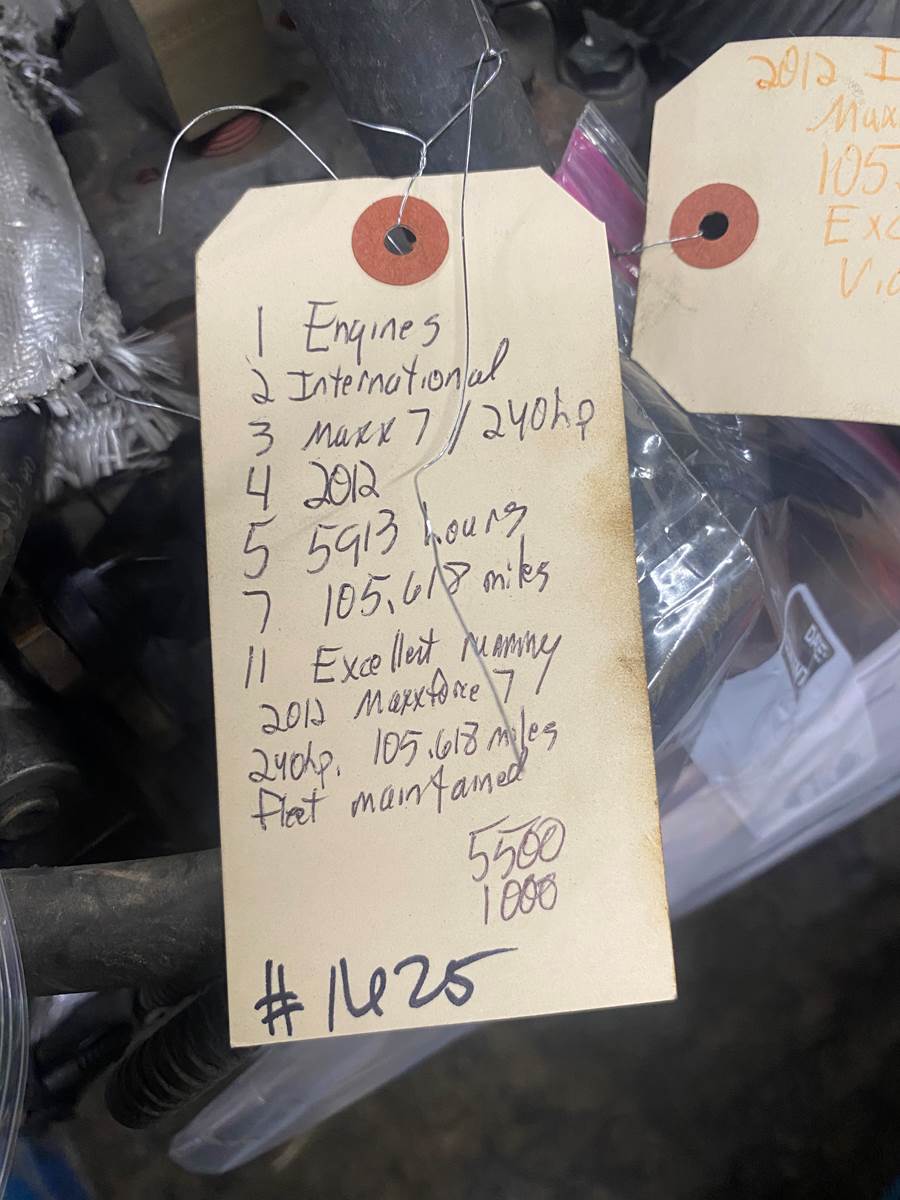 1 Engines
2 International
3 Maxx 7 / 240hp
4 2012
5 5913 hours
7 105,618 miles
11 Excellent running
2012 Maxxforce 7 /
240hp. 105,618 miles
fleet maintained
5500
1000
#1625
2012 I
Max
105,
Exc
Vid